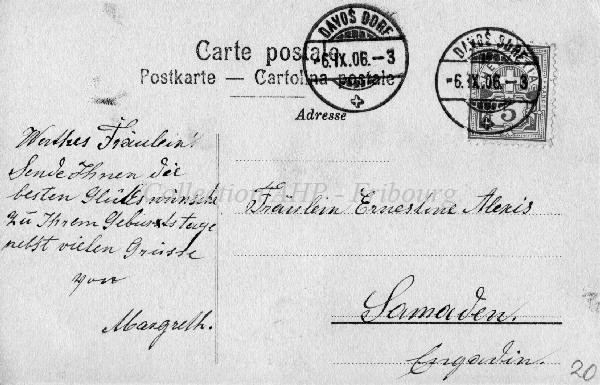 Carte postale
Postkarte — Cartolina postale
Adresse
DAVOS DORF
-6.IX.06.-3
DAVOS DORF
-6.IX.06.-3
5
Werthes Fräulein!
Sende Ihnen die
besten Glückswünsche
zu Ihrem Geburtstage
nebst vielen Grüsse
von
Margreth.
Fräulein Ernestine Alexis
Samaden.
Engadin.
20
Collection AHP - Fribourg